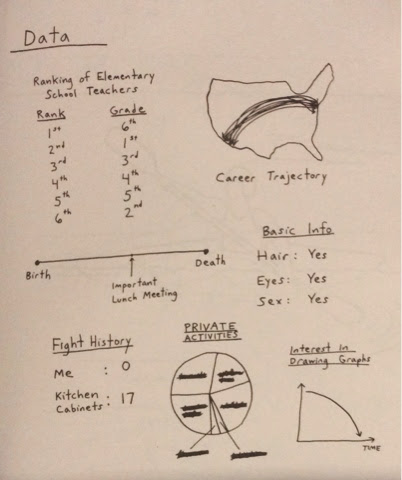 Data
Ranking of Elementary
School Teachers
Rank Grade
1st 6th
2nd 1st
3rd 3rd
4th 4th
5th 5th
6th 2nd
Career Trajectory
Birth
Important
Lunch Meeting
Death
Basic Info
Hair: Yes
Eyes: Yes
Sex: Yes
Fight History
Me : 0
Kitchen
Cabinets: 17
PRIVATE
ACTIVITIES
Interest in
Drawing Graphs
TIME